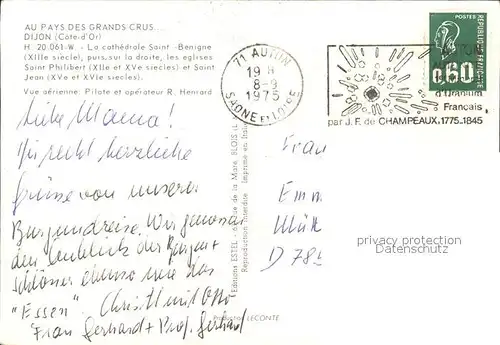 AU PAYS DES GRANDS CRUS...
DIJON (Côte-d'Or)
H. 20.061-W - La cathédrale Saint-Benigne
(XIIIe siècle), puis, sur la droite, les églises
Saint Philibert (XIIe et XVe siècles) et Saint
Jean (XVe et XVIe siècles).
Vue aérienne: Pilote et opérateur R. Henrard
71 AUTUN
19 H
8-9
1975
SAONE ET LOIRE
POSTES
REPUBLIQUE FRANÇAISE
0,60
d'Uranium
Français
par J. F. de CHAMPEAUX. 1775-1845
Liebe Mama!
recht herzliche
Grüsse von unserer
Burgundreise. Wir genossen
den Anblick der Burgen +
Schlösser ebenso wie das
"Essen".
Frau Gerhard + Prof. Gerhard
Frau
D 78
Editions ESTEL - de la Mare, BLOIS
Reproduction interdite Imprimé en Italie
Production LECONTE
protection watermark
Documenta GmbH